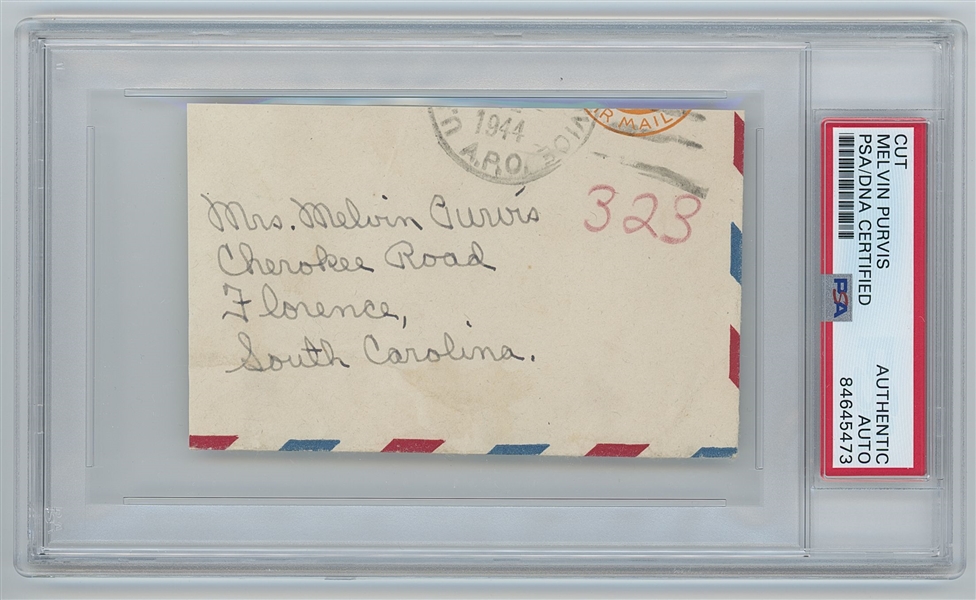 1944
A.P.O.
AIR MAIL
323
Mrs. Melvin Purvis
Cherokee Road
Florence,
South Carolina.
CUT
MELVIN PURVIS
PSA/DNA CERTIFIED
PSA
AUTHENTIC
AUTO
84645473